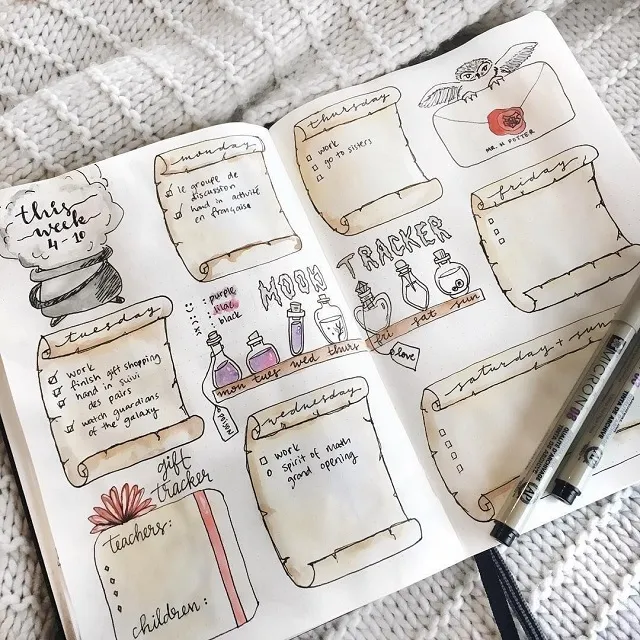 this
week
4-10
monday
le groupe de
discussion
hand in activité
en française
tuesday
work
finish gift shopping
hand in suivi
des pairs
watch guardians
of the galaxy
gift
tracker
teachers:
children:
: purple
: lilac
: black
MOON TRACKER
mon tues wed thurs fri sat sun
POISON
love
wednesday
work
spirit of math
grand opening
thursday
work
go to sisters
MR. H POTTER
friday
saturday + sun
MICRON